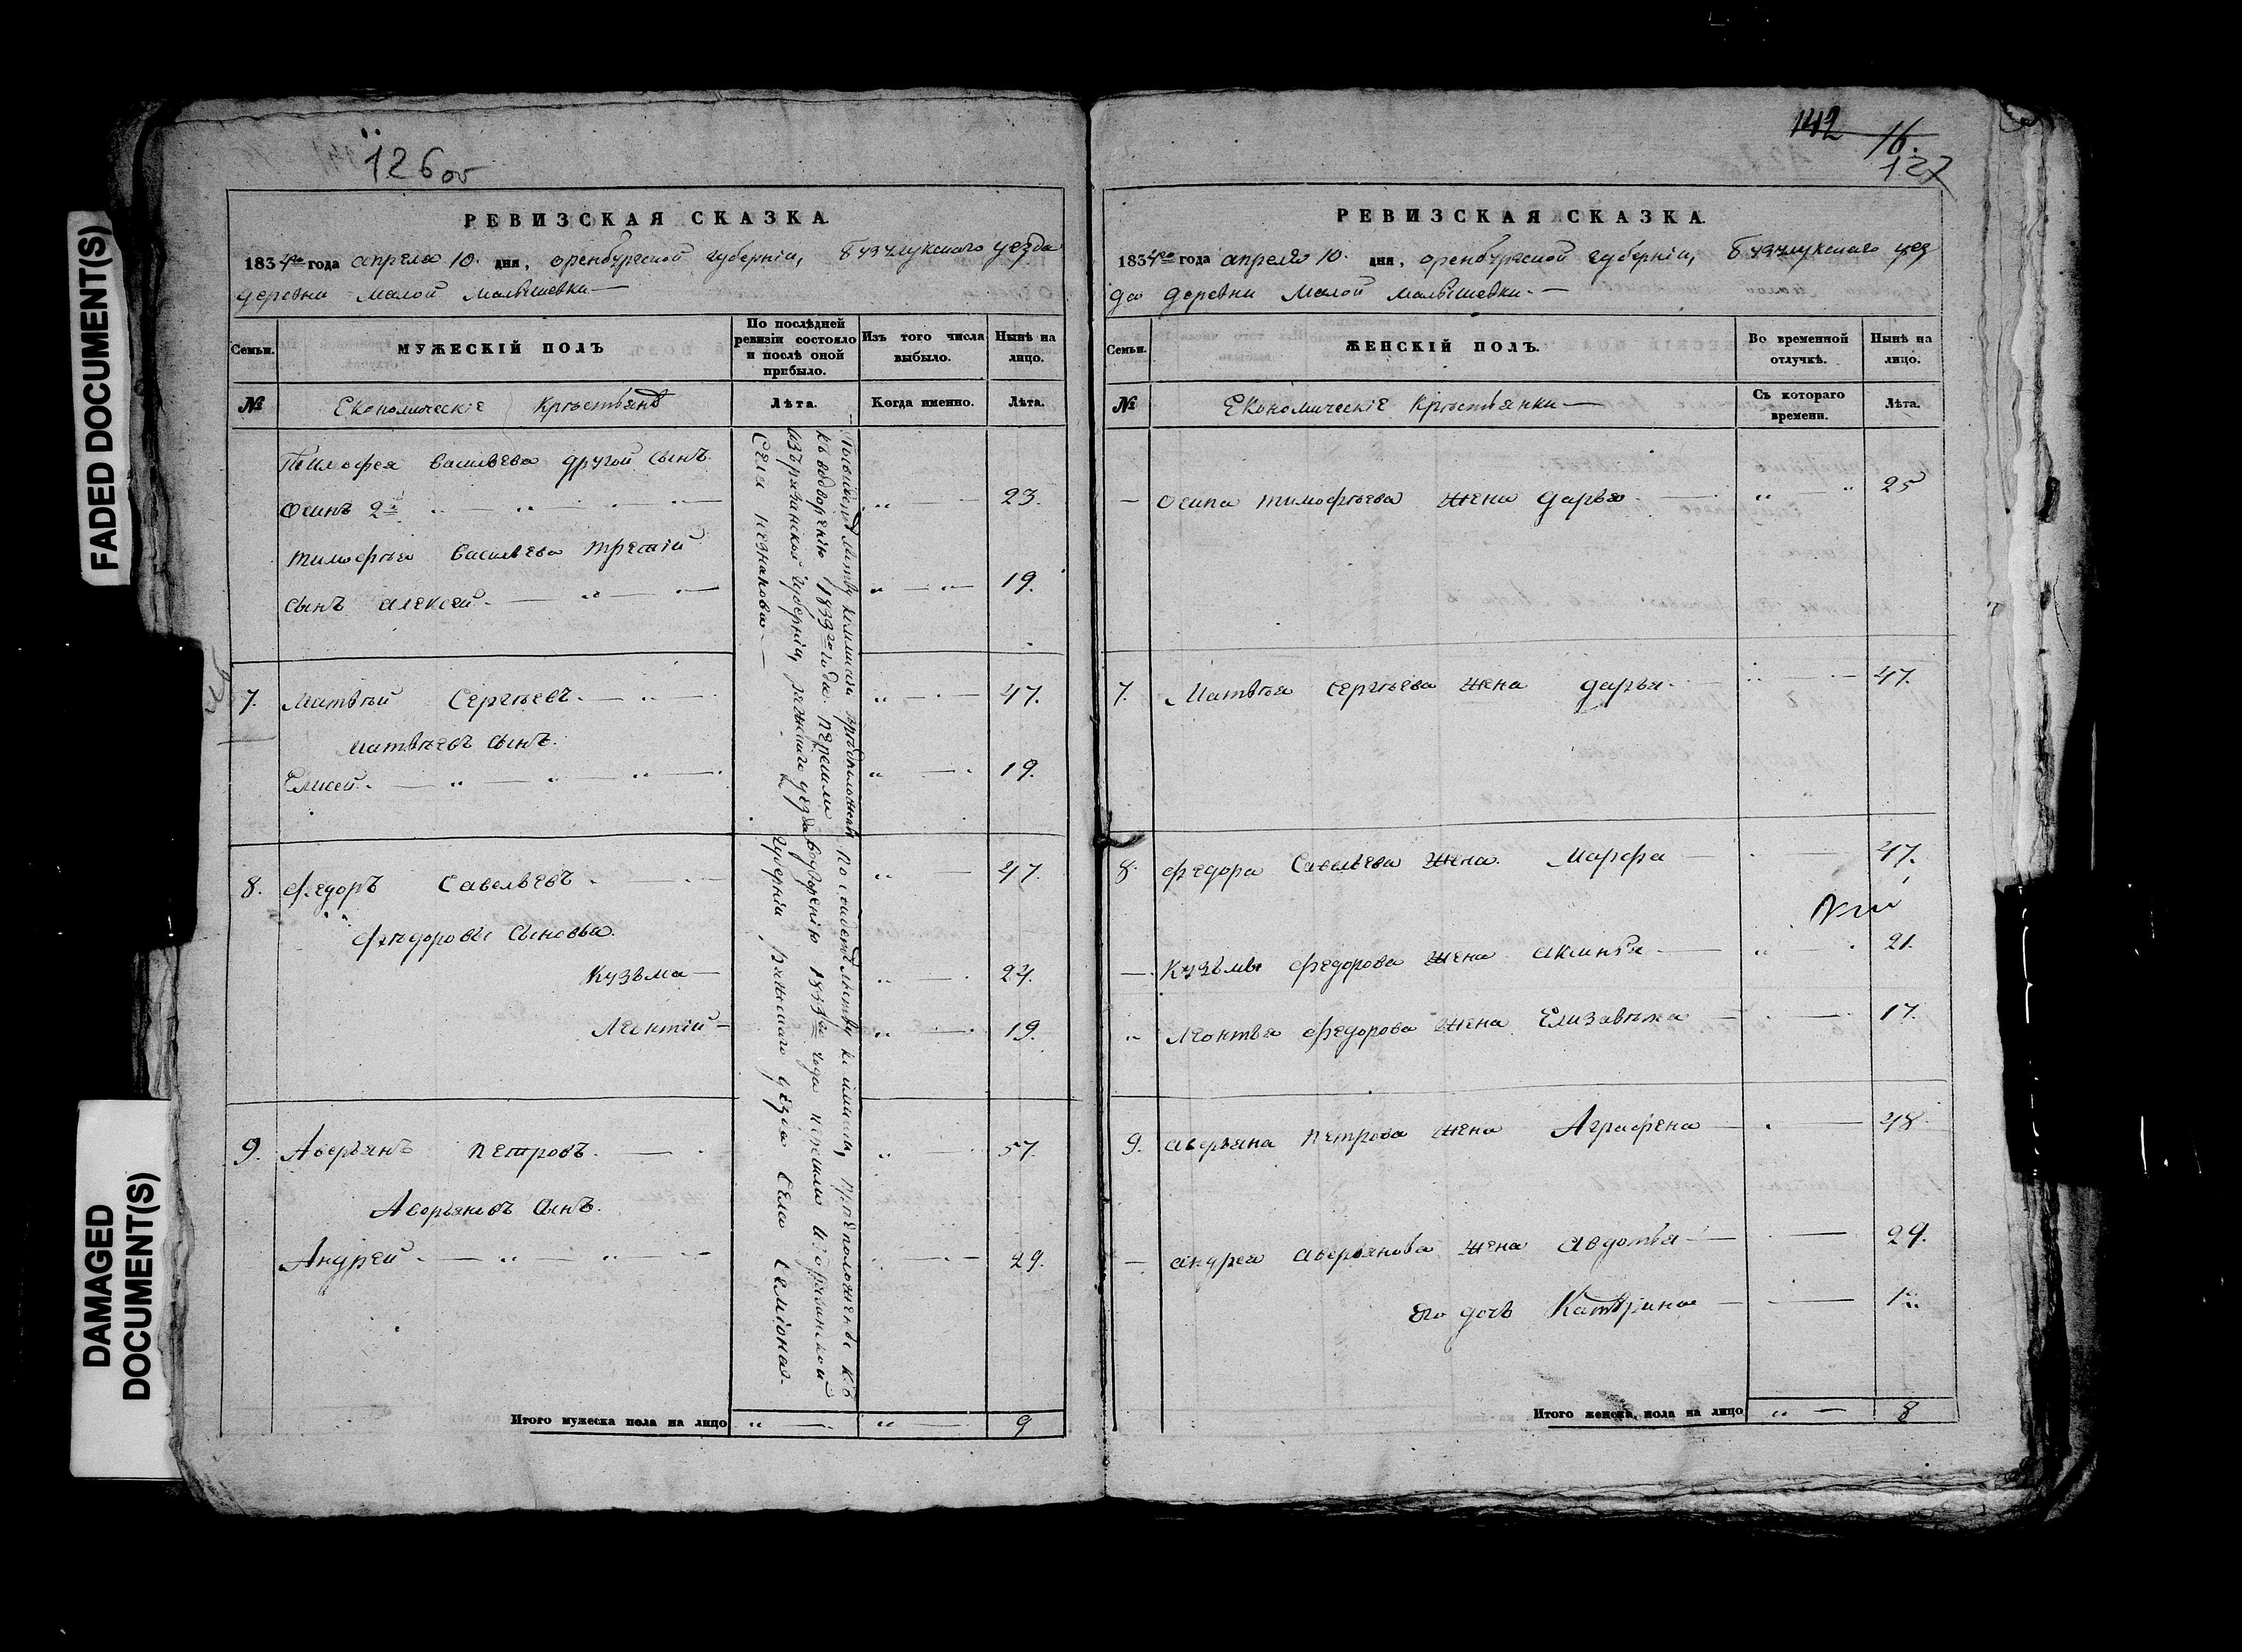 FADED DOCUMENT(S)
DAMAGED
DOCUMENT(S)
126 об
РЕВИЗСКАЯ СКАЗКА.
1834го года апреля 10. дня, оренбургской губерніи, Бузулукскаго уезда
деревни малой малышевки —
Семьи.
МУЖЕСКІЙ ПОЛЪ
По послѣдней
ревизіи состояло
и послѣ оной
прибыло.
Изъ того числа
выбыло.
Нынѣ на
лицо.
№
Економическіе Крѣстьянѣ
Лѣта.
Когда именно.
Лѣта.
Тимофея васильева другой сынъ.
осипъ 2й 23.
тимофѣя васильева третий
сынъ алексей. 19.
7. Матвѣй Сергѣевъ. 47.
матвѣевъ сынъ.
Елисей. 19.
8. Федоръ Савельевъ. 47.
Фѣдоровы сыновья.
Кузьма — 24.
Леонтій — 19.
9. Аверьянъ петровъ. 57.
Аверьяновъ сынъ.
Андрей. 29.
къ водворению 1833го года. перешли
из рязанской губерніи, ряжскаго уезда
Села незнакова —
водворению 1833го года перешли из рязанской
губерніи, ряжскаго уезда Села семiона.
Итого мужеска пола на лицо 9
142 16.
127
РЕВИЗСКАЯ СКАЗКА.
1834го года апреля 10. дня, оренбургской губерніи, Бузулукскаго уез
да деревни малой малышевки. —
Семьи.
ЖЕНСКІЙ ПОЛЪ.
Во временной
отлучкѣ.
Нынѣ на
лицо.
№
Економическіе Крѣстьянки —
Съ котораго
времени.
Лѣта.
— осипа тимофѣева жена дарья 25
7. Матвѣя сергѣева жена дарья. 47.
8. федора Савельева жена. Марфа 47.
— Кузьмы федорова жена акинья — 21.
„ Леонтья федорова жена Елизавѣта 17.
9. аверьяна петрова жена Аграфена 48.
— андрея аверьянова жена авдотья 29.
Его дочь Катѣрина 1
Итого женска, пола на лицо 8